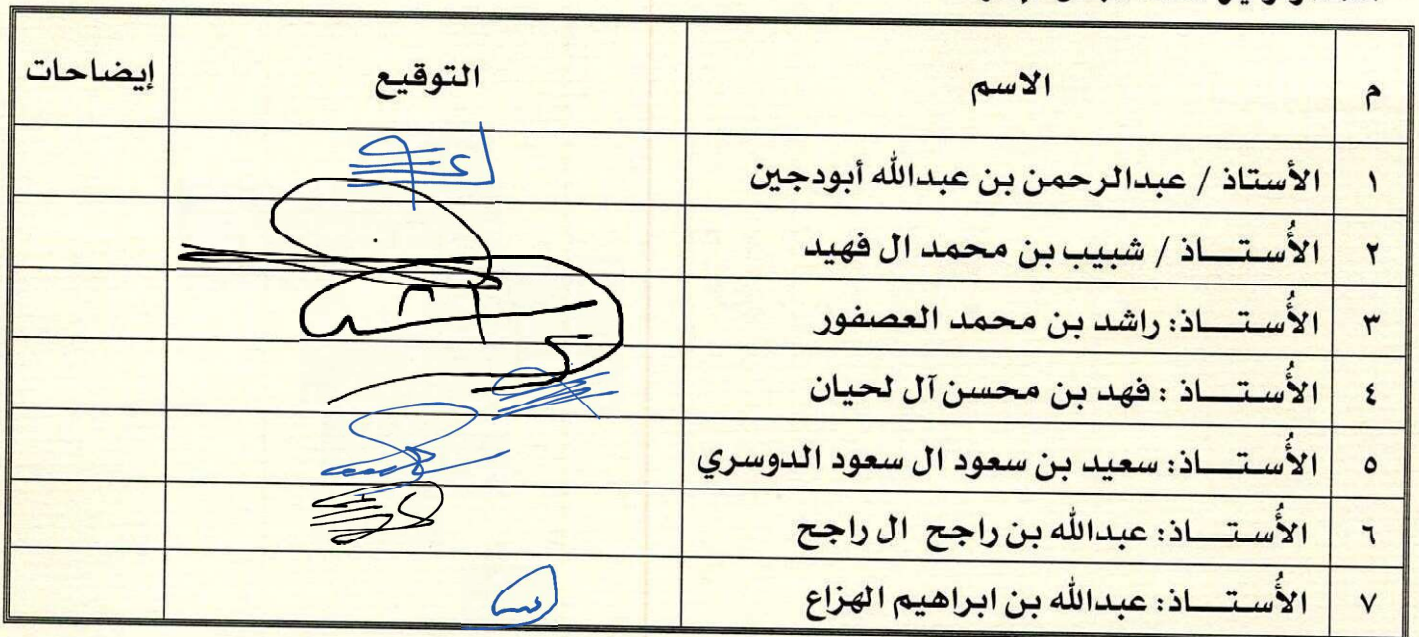 م الاسم التوقيع إيضاحات
١ الأستاذ / عبدالرحمن بن عبدالله أبودجين
٢ الأُستــــاذ / شبيب بن محمد ال فهيد
٣ الأُستــــاذ: راشد بن محمد العصفور
٤ الأُستــــاذ : فهد بن محسن آل لحيان
٥ الأُستــــاذ: سعيد بن سعود ال سعود الدوسري
٦ الأُستــــاذ: عبدالله بن راجح ال راجح
٧ الأُستــــاذ: عبدالله بن ابراهيم الهزاع